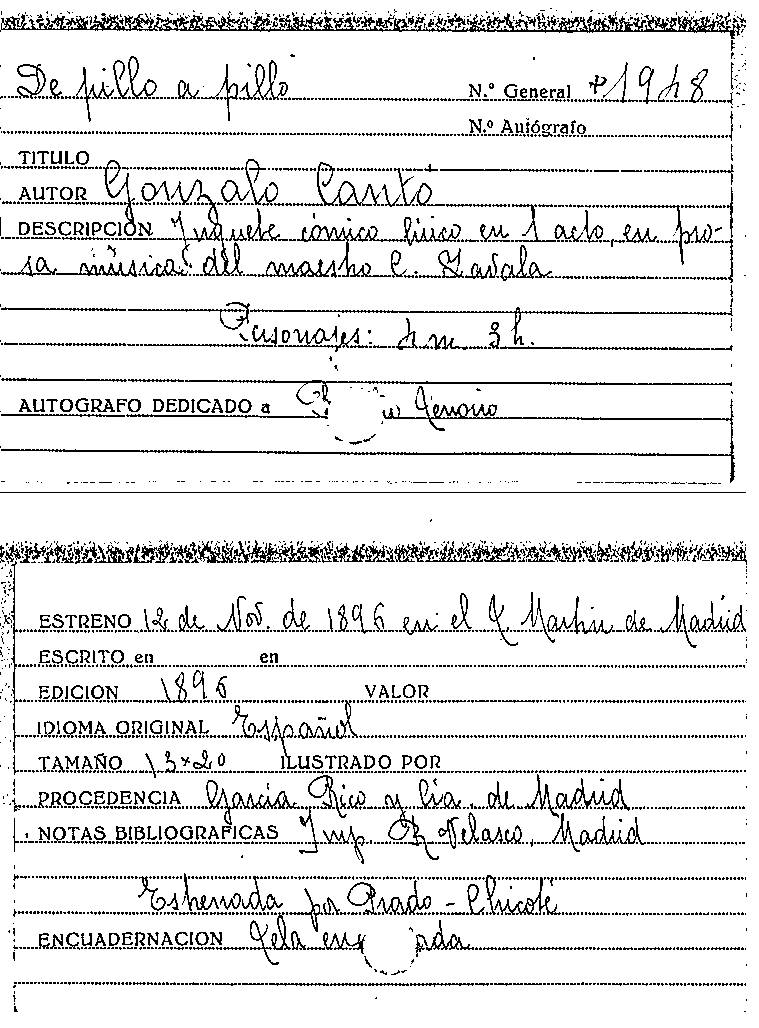 De pillo a pillo
N.º General 1948
N.º Autógrafo
TITULO
AUTOR Gonzalo Canto
DESCRIPCIÓN Juguete cómico lírico en 1 acto, en pro-
sa música del maestro C. Zavala
Personajes: 4 m. 3 h.
AUTOGRAFO DEDICADO a
ESTRENO 12 de Nov. de 1896 en el T. Martin de Madrid
ESCRITO en en
EDICION 1896 VALOR
IDIOMA ORIGINAL Español
TAMAÑO 13×20 ILUSTRADO POR
PROCEDENCIA García Rico y Cía. de Madrid
NOTAS BIBLIOGRAFICAS Imp. R. Velasco, Madrid
Estrenada por Prado - Chicote
ENCUADERNACION Tela